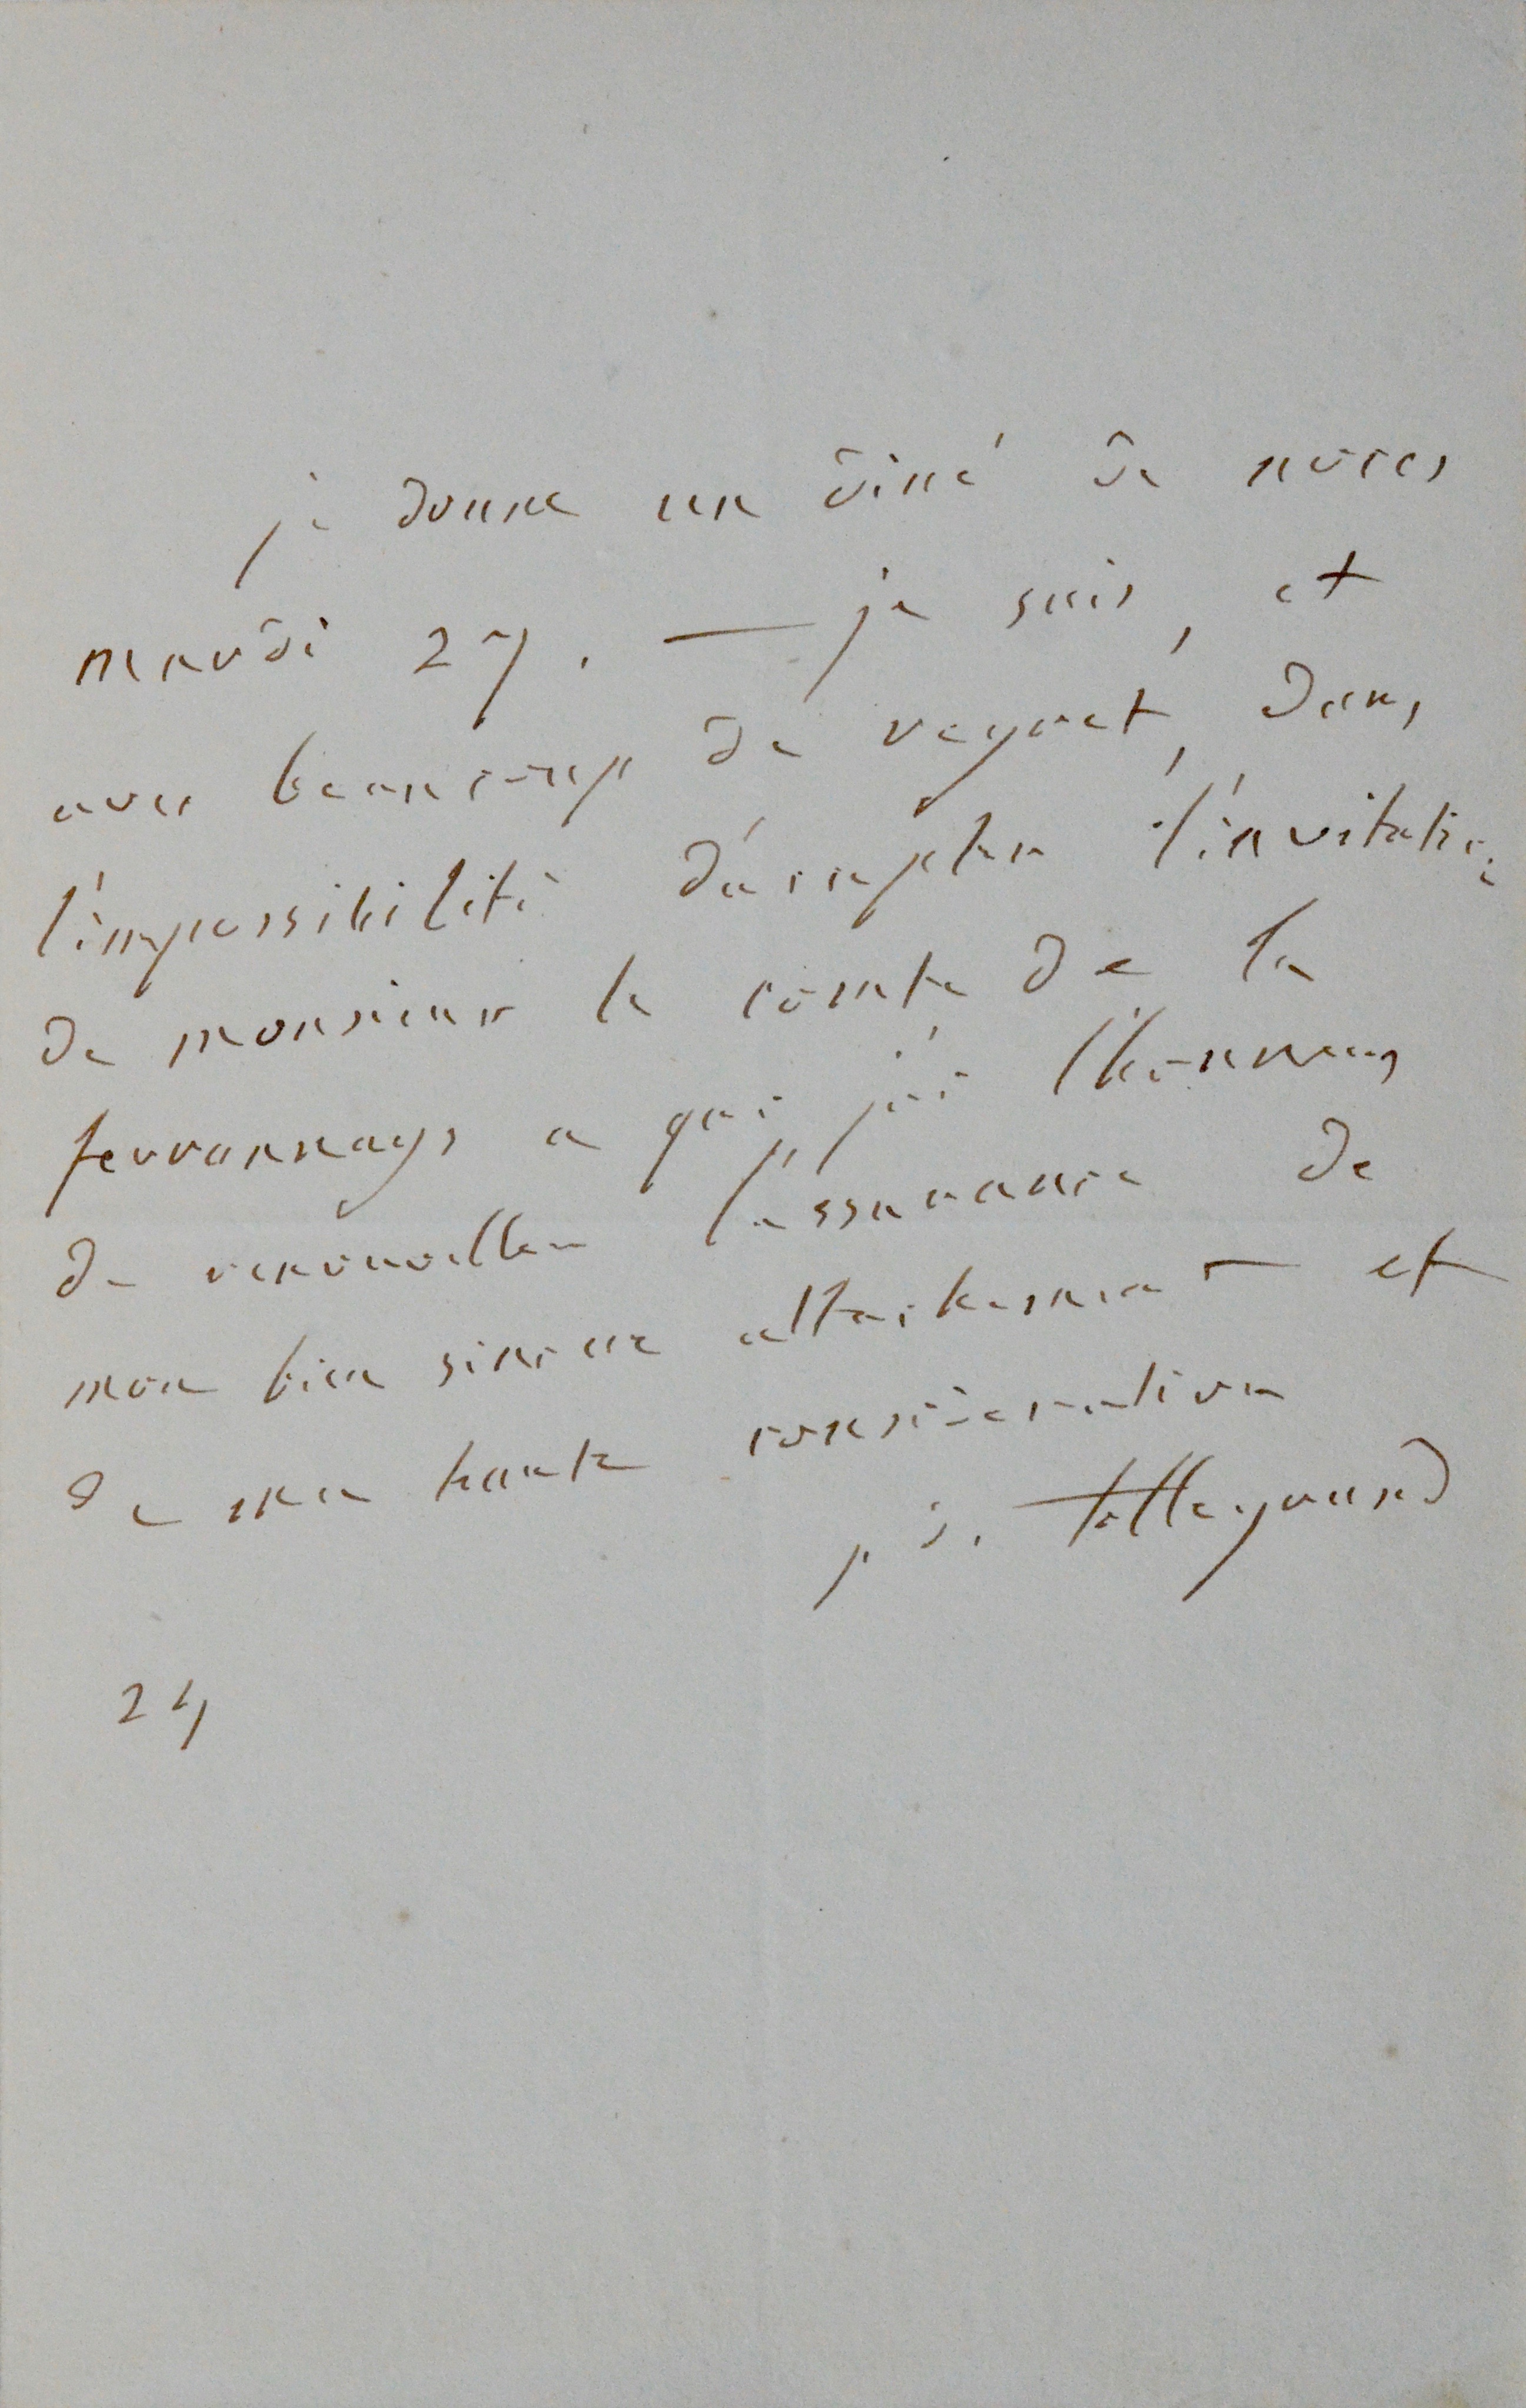 je donne un diné de noces
mardi 27. — je suis, et
avec beaucoup de regret, dans
l'impossibilité d'accepter l'invitation
de monsieur le comte de la
ferronnays a qui j'ai l'honneur
de renouveller l'assurance de
mon bien sincere attachement et
de ma haute consideration
p. d. talleyrand
24